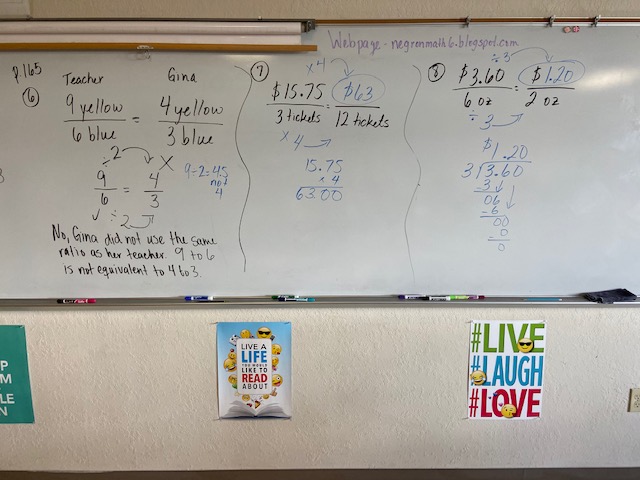 Webpage - negronmath6.blogspot.com
p.165
6
Teacher Gina
9 yellow = 4 yellow
6 blue 3 blue
÷2 X
9 = 4
6 3
✓ ÷2
9÷2=4.5
not
4
No, Gina did not use the same
ratio as her teacher. 9 to 6
is not equivalent to 4 to 3.
7
x4
$15.75 = $63
3 tickets 12 tickets
x4
15.75
x 4
63.00
8
÷3
$3.60 = $1.20
6 oz 2 oz
÷3
$1.20
3 3.60
-3
06
-6
00
-0
0
LIVE A
LIFE
YOU WOULD
LIKE TO
READ
ABOUT
#LIVE
#LAUGH
#LOVE